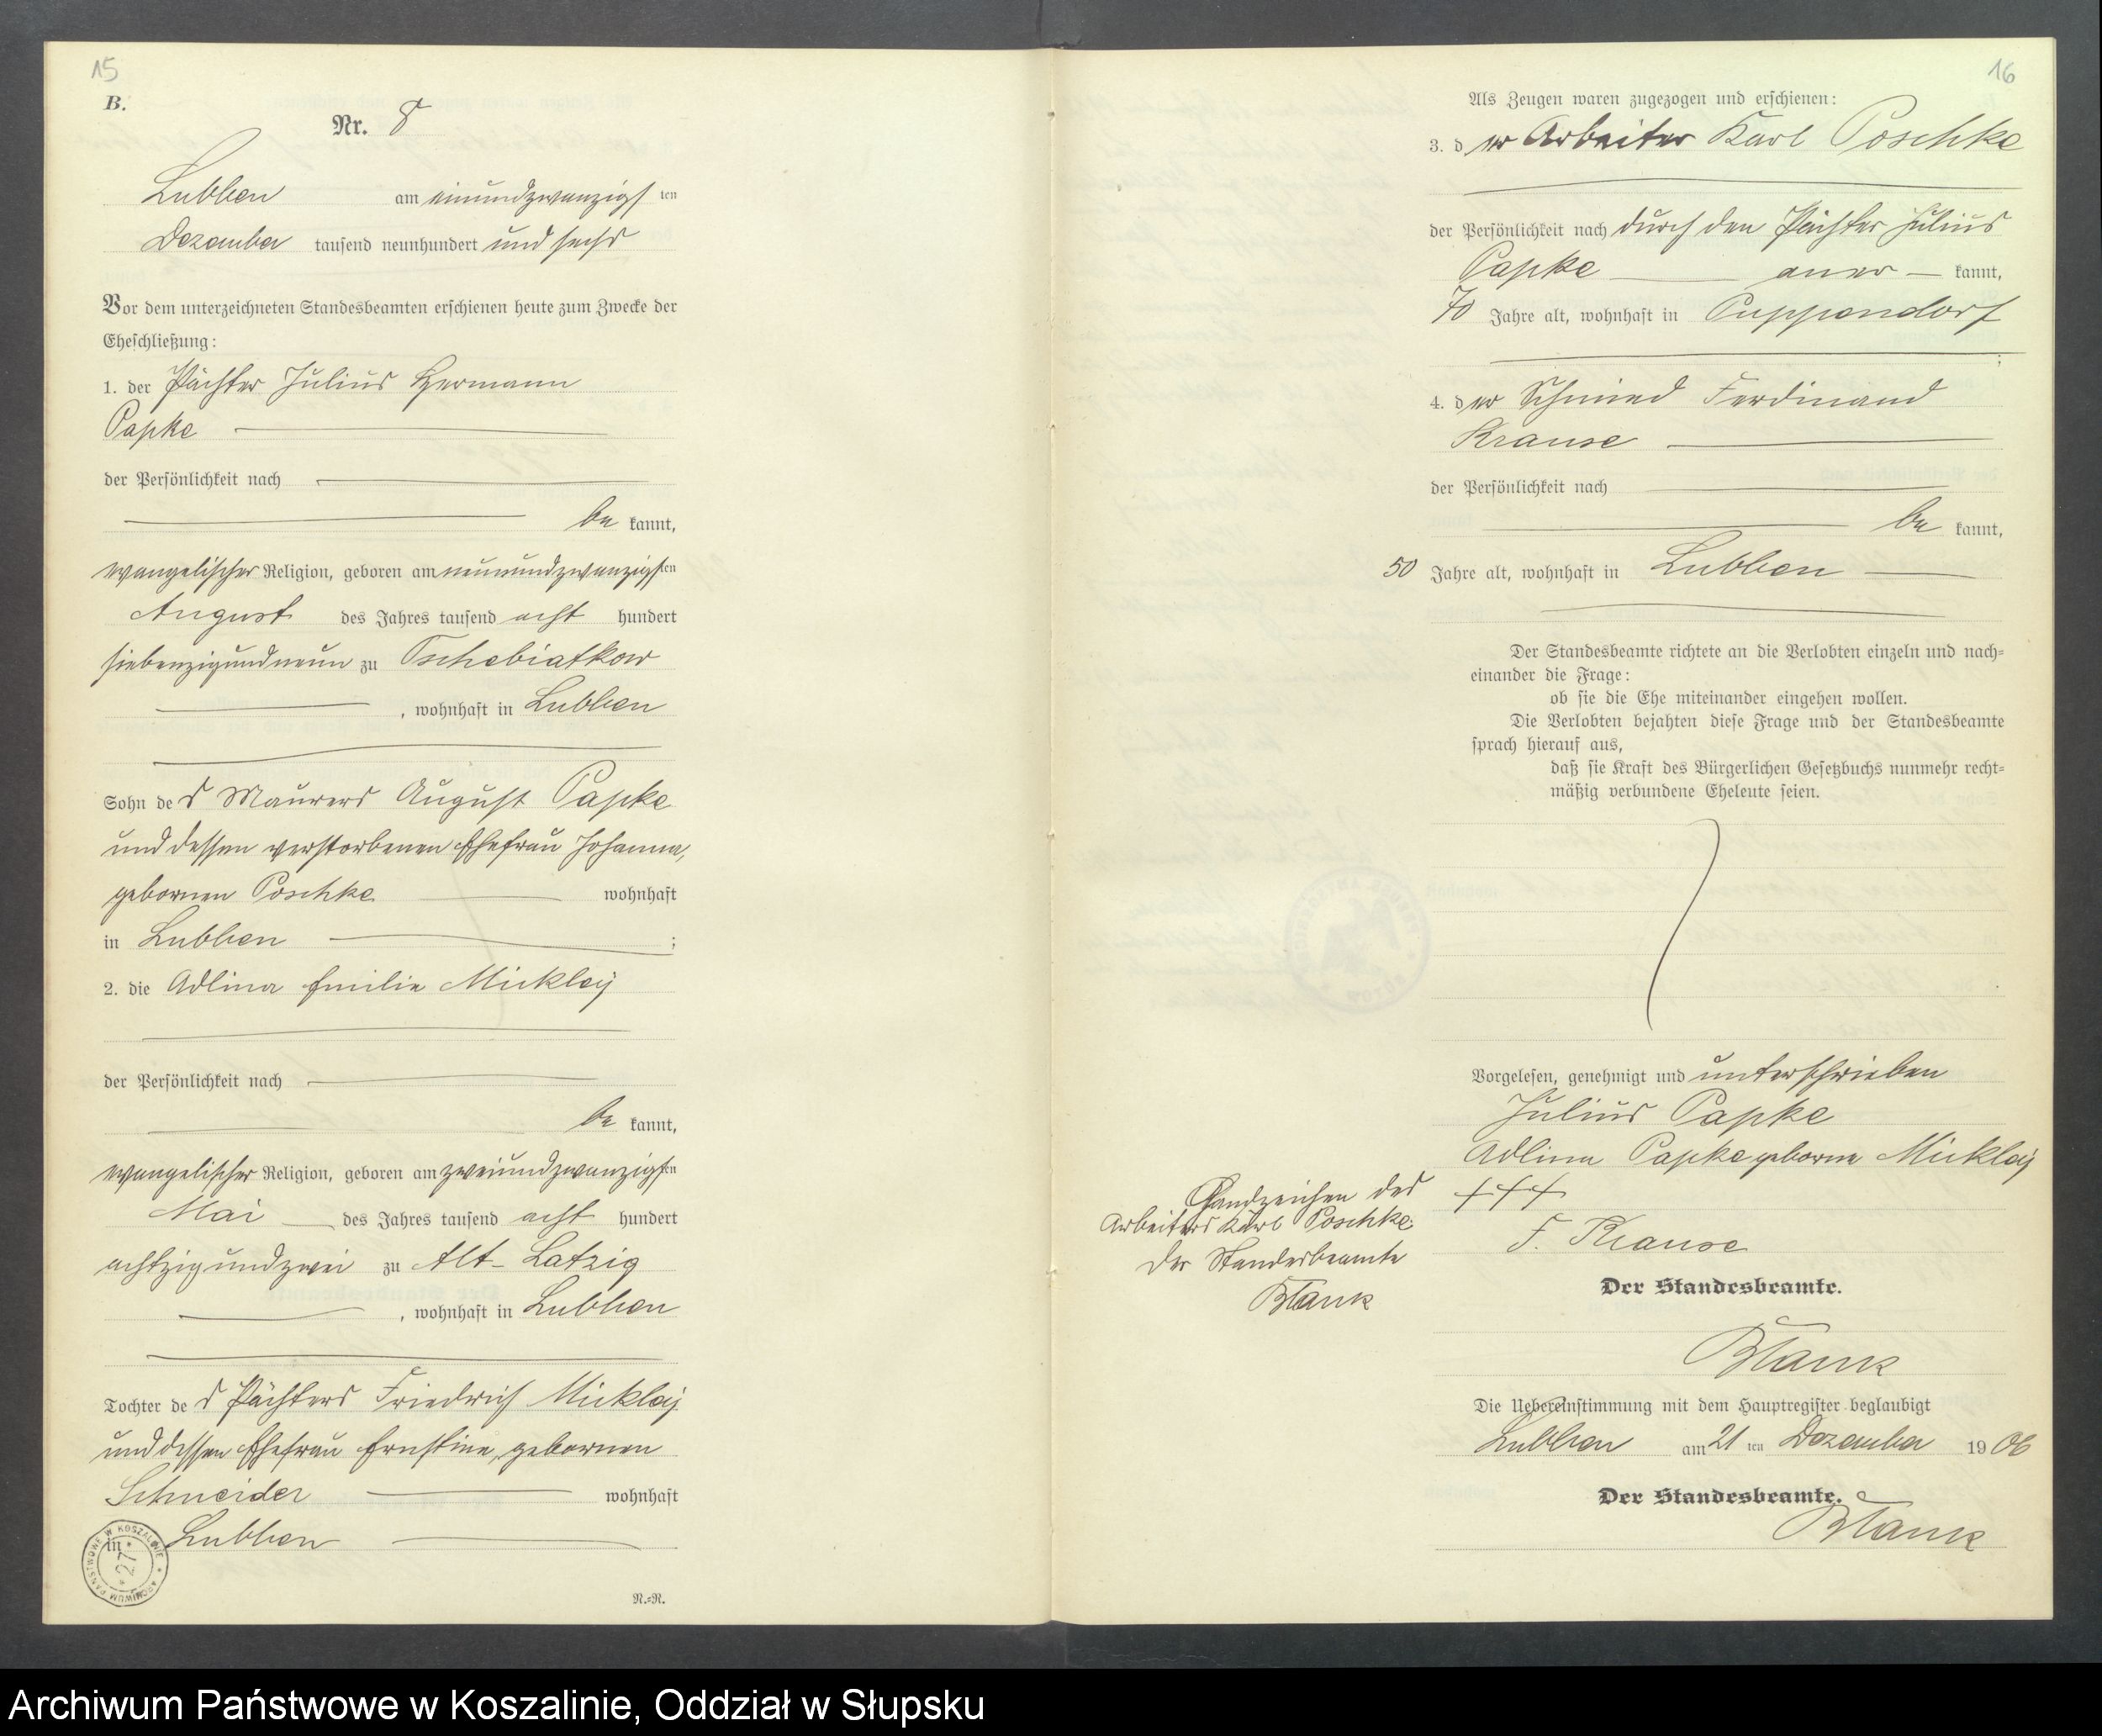 15
B.
Nr. 8
Lubben am einundzwanzigsten
Dezember tausend neunhundert und sechs
Vor dem unterzeichneten Standesbeamten erschienen heute zum Zwecke der
Eheschließung:
1. der Pächter Julius Hermann
Papke
der Persönlichkeit nach
be kannt,
evangelischer Religion, geboren am neunundzwanzigsten
August des Jahres tausend acht hundert
siebenzigundneun zu Tschebiatkow
, wohnhaft in Lubben
Sohn des Maurers August Papke
und dessen verstorbenen Ehefrau Johanna,
gebornen Poschke wohnhaft
in Lubben ;
2. die Adlina Emilie Micklej
der Persönlichkeit nach
be kannt,
evangelischer Religion, geboren am zweiundzwanzigsten
Mai des Jahres tausend acht hundert
achtzigundzwei zu Alt-Latzig
, wohnhaft in Lubben
Tochter des Pächters Friedrich Micklej
und dessen Ehefrau Ernstine, gebornen
Schneider wohnhaft
in Lubben
ARCHIWUM PAŃSTWOWE W KOSZALINIE
* 27 *
N.=N.
16
Als Zeugen waren zugezogen und erschienen:
3. der Arbeiter Karl Poschke
der Persönlichkeit nach durch den Pächter Julius
Papke aner kannt,
70 Jahre alt, wohnhaft in Puppendorf
;
4. der Schmied Ferdinand
Krause
der Persönlichkeit nach
be kannt,
50 Jahre alt, wohnhaft in Lubben
Der Standesbeamte richtete an die Verlobten einzeln und nach=
einander die Frage:
ob sie die Ehe miteinander eingehen wollen.
Die Verlobten bejahten diese Frage und der Standesbeamte
sprach hierauf aus,
daß sie Kraft des Bürgerlichen Gesetzbuchs nunmehr recht=
mäßig verbundene Eheleute seien.
Vorgelesen, genehmigt und unterschrieben
Julius Papke
Adlina Papke geborne Micklej
Handzeichen des +++
Arbeiters Karl Poschke.
F. Krause
Der Standesbeamte
Blank
Der Standesbeamte.
Blank
Die Uebereinstimmung mit dem Hauptregister beglaubigt
Lubben am 21 ten Dezember 1906
Der Standesbeamte.
Blank
Archiwum Państwowe w Koszalinie, Oddział w Słupsku